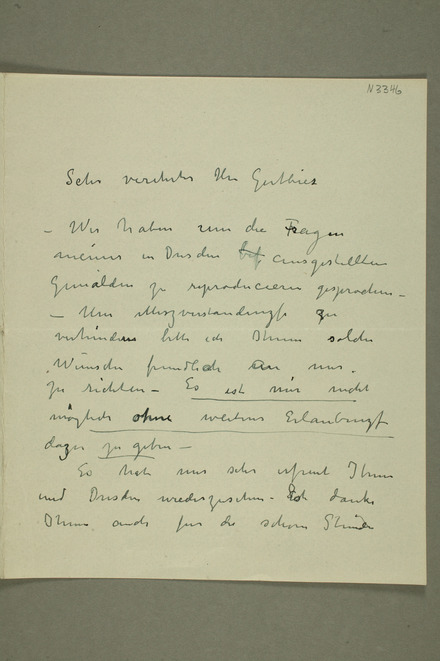 N3346
Sehr verehrter Herr Gutbier
– Wir haben nun die Fragen
meiner in Dresden ausgestellten
Gemälden zu reproducieren gesprochen –
– Um Miszverständnisse zu
verhindern bitte ich Ihnen solche
Wünsche freundlich an mir
zu richten – Es ist mir nicht
möglich ohne weiteres Erlaubnis
dazu zu geben –
Es hat mir sehr erfreut Ihnen
und Dresden wiederzusehen – Ich danke
Ihnen auch für die schöne Stunden